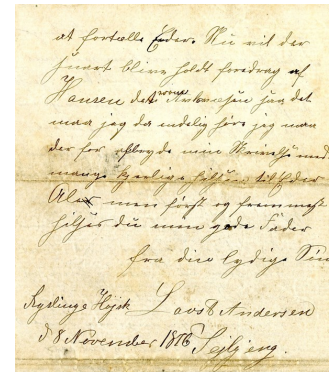 at fortælle Eder. Nu vil der
snart blive holdt foredrag af
Hansen det var jeg det
maa jeg da endelig høre jeg maa
der for afbryde min Skrivelse med
mange kjerlige hilsen til Eder
Alle men først og fremmest
hilses du min gode Fader
fra din lydige Søn
Ryslinge Højsk Laust Andersen
d 8 November 1876 Sejbjeng.